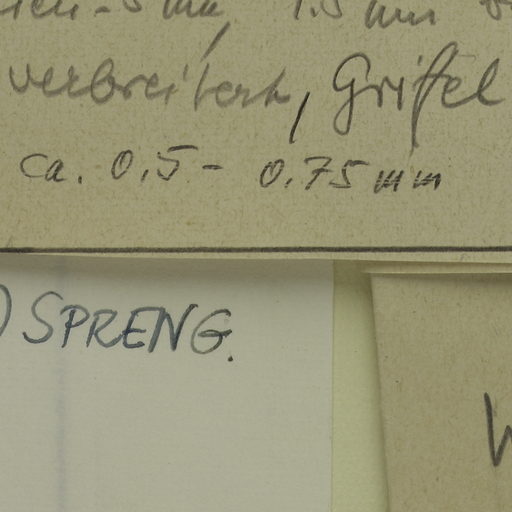 5 mm, 1.5 mm
verbreitert, Griffel
ca. 0.5 - 0.75 mm
) SPRENG.